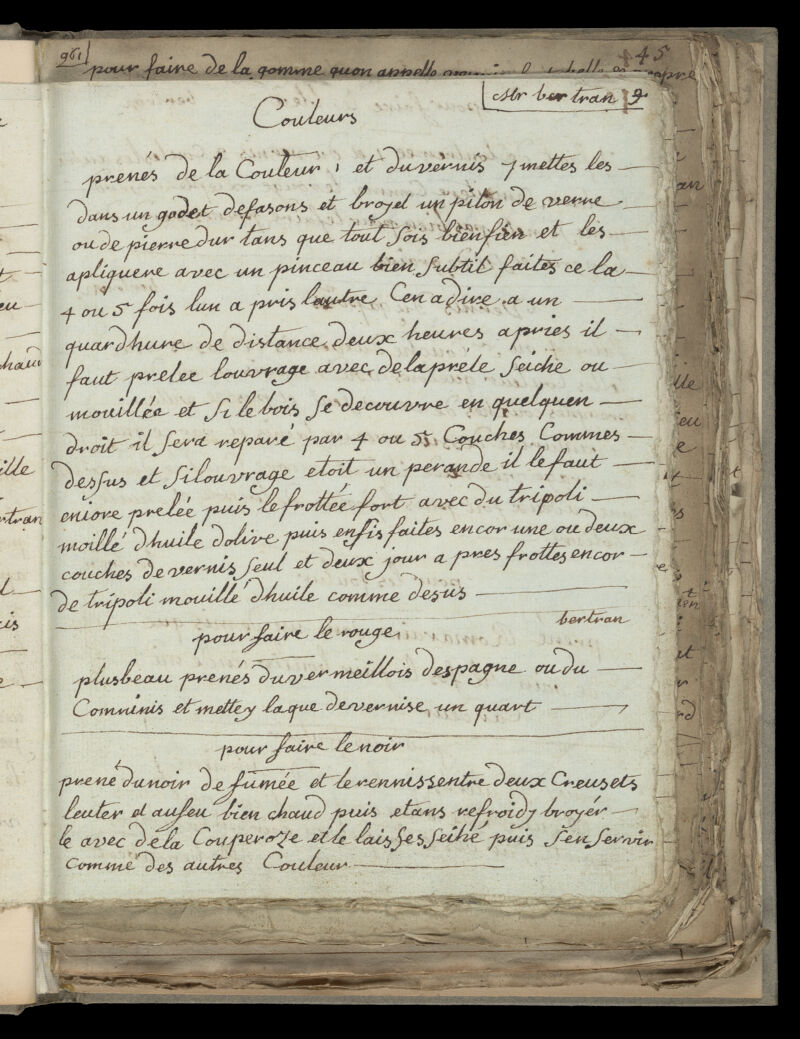 961
45
pour faire de la gomme quon appelle
propre
Mr bertran 9
Couleurs
prenés de la Couleur, et duvernis y mettes les
dans un godet defasons et broyel un pilon de verre
ou de pierre dur tans que tout sois bienfien et les
apliquere avec un pinceau bien subtil faites ce la
4 ou 5 fois lun a pris lautre Cen adire a un
quardhure de distance deux heures apries il
faut prelee louvrage avec delaprele seiche ou
mouillée et si lebois se decouvre en quelquen
droit il sera reparé par 4 ou 5 Couches Commes
dessus et silouvrage etoit un perande il lefaut
eniore prelée puis lefrottée fort avec du tripoli
moillé dhuile dolive puis enfis faites encor une ou deux
couches devernis seul et deux jour a pres frottes encor
de tripoli mouillé dhuile comme desus
bertran
pour faire le rouge
plusbeau prenés duvermeillois despagne oudu
Comninis et mettey laque devernise un quart
pour faire lenoir
prené dunoir de fumée et lerennissentre deux Creusets
leuter et aufeu bien chaud puis etans refroidy broyér
le avec dela Couperoze et le laisses seihé puis sen servir
comme des autres Couleur